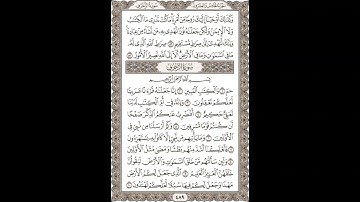 الجزء الخامس والعشرون سورة الزخرف
وَكَذَٰلِكَ أَوْحَيْنَآ إِلَيْكَ رُوحًا مِّنْ أَمْرِنَا مَا كُنتَ تَدْرِى مَا ٱلْكِتَٰبُ
وَلَا ٱلْإِيمَٰنُ وَلَٰكِن جَعَلْنَٰهُ نُورًا نَّهْدِى بِهِۦ مَن نَّشَآءُ مِنْ عِبَادِنَا
وَإِنَّكَ لَتَهْدِىٓ إِلَىٰ صِرَٰطٍ مُّسْتَقِيمٍ ٥٢ صِرَٰطِ ٱللَّهِ ٱلَّذِى لَهُۥ
مَا فِى ٱلسَّمَٰوَٰتِ وَمَا فِى ٱلْأَرْضِ أَلَآ إِلَى ٱللَّهِ تَصِيرُ ٱلْأُمُورُ ٥٣
سُورَةُ الزُّخْرُفِ
بِسْمِ ٱللَّهِ ٱلرَّحْمَٰنِ ٱلرَّحِيمِ
حمٓ ١ وَٱلْكِتَٰبِ ٱلْمُبِينِ ٢ إِنَّا جَعَلْنَٰهُ قُرْءَٰنًا عَرَبِيًّا
لَّعَلَّكُمْ تَعْقِلُونَ ٣ وَإِنَّهُۥ فِىٓ أُمِّ ٱلْكِتَٰبِ لَدَيْنَا
لَعَلِىٌّ حَكِيمٌ ٤ أَفَنَضْرِبُ عَنكُمُ ٱلذِّكْرَ صَفْحًا أَن
كُنتُمْ قَوْمًا مُّسْرِفِينَ ٥ وَكَمْ أَرْسَلْنَا مِن نَّبِىٍّ فِى
ٱلْأَوَّلِينَ ٦ وَمَا يَأْتِيهِم مِّن نَّبِىٍّ إِلَّا كَانُوا۟ بِهِۦ يَسْتَهْزِءُونَ
٧ فَأَهْلَكْنَآ أَشَدَّ مِنْهُم بَطْشًا وَمَضَىٰ مَثَلُ ٱلْأَوَّلِينَ
٨ وَلَئِن سَأَلْتَهُم مَّنْ خَلَقَ ٱلسَّمَٰوَٰتِ وَٱلْأَرْضَ لَيَقُولُنَّ
خَلَقَهُنَّ ٱلْعَزِيزُ ٱلْعَلِيمُ ٩ ٱلَّذِى جَعَلَ لَكُمُ ٱلْأَرْضَ
مَهْدًا وَجَعَلَ لَكُمْ فِيهَا سُبُلًا لَّعَلَّكُمْ تَهْتَدُونَ ١٠
٤٨٩